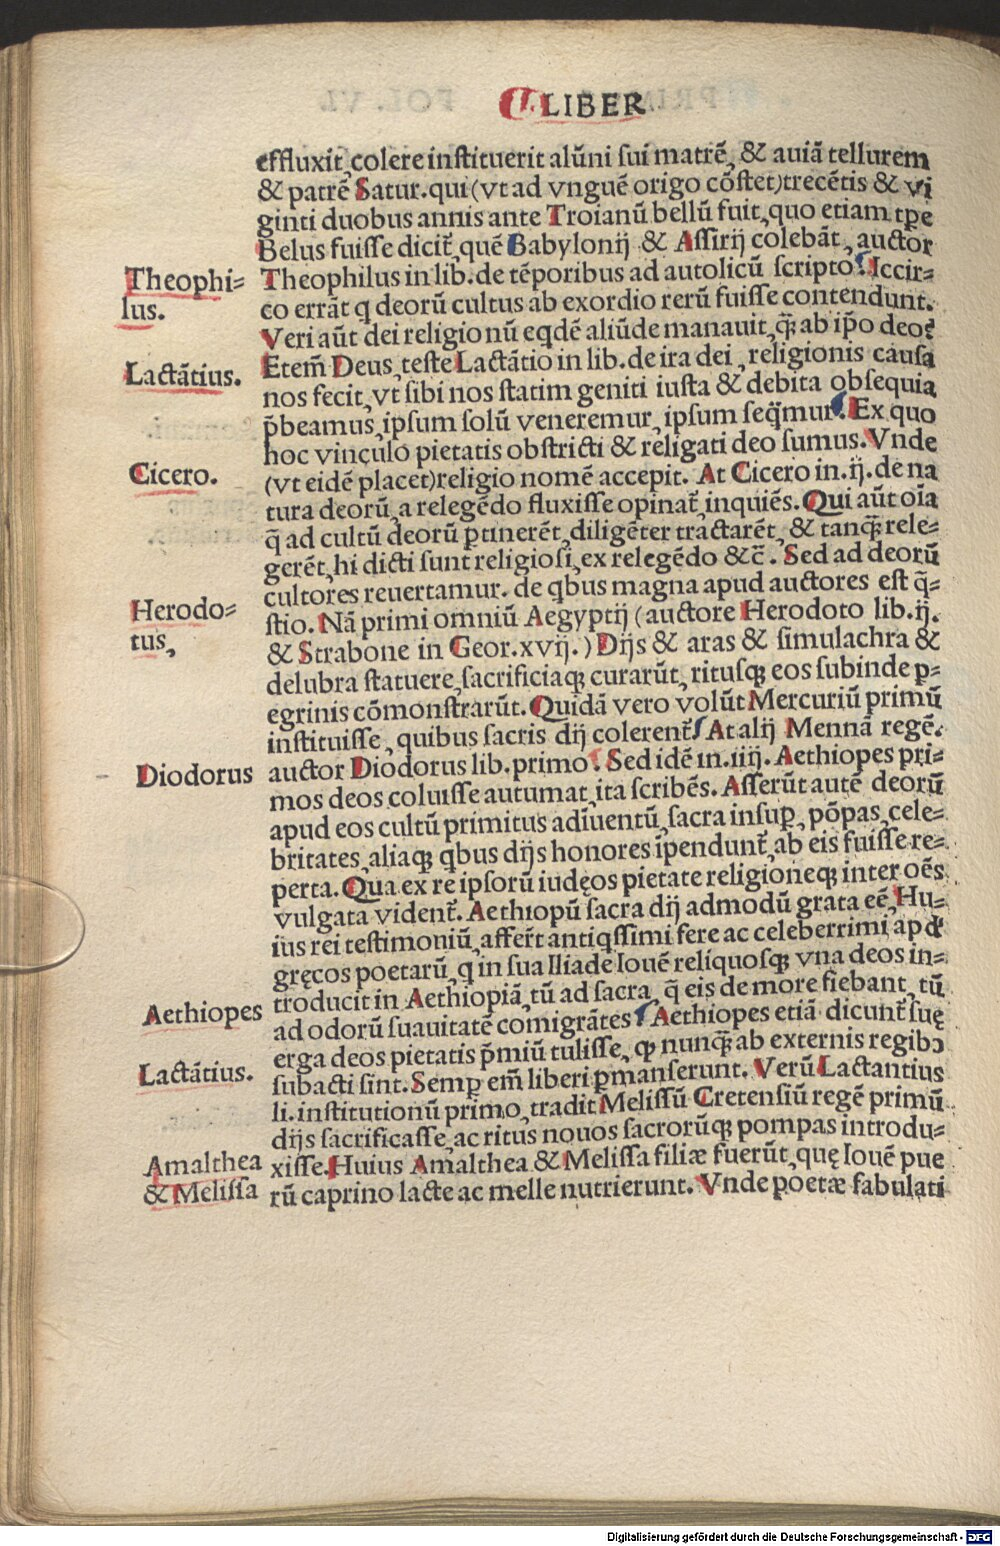 LIBER
effluxit, colere instituerit alūni sui matrē, & auiā tellurem
& patrē Satur. qui (vt ad vnguē origo cōstet) trecētis & vi
ginti duobus annis ante Troianū bellū fuit, quo etiam tp̄e
Belus fuisse dicit᷑, quē Babylonij & Assirij colebāt, auctor
Theophi-
lus.
Theophilus in lib. de tēporibus ad autolicū scripto. Iccir-
co errāt q deorū cultus ab exordio rerū fuisse contendunt.
Veri aūt dei religio nū eqdē aliūde manauit, q̄ ab ip̄o deo?
Lactātius.
Etem̄ Deus, teste Lactātio in lib. de ira dei, religionis causa
nos fecit, vt sibi nos statim geniti iusta & debita obsequia
p̄beamus, ipsum solū veneremur, ipsum seq̄mur. Ex quo
hoc vinculo pietatis obstricti & religati deo sumus. Vnde
Cicero.
(vt eidē placet) religio nomē accepit. At Cicero in .ij. de na
tura deorū, a relegēdo fluxisse opinat᷑ inquiēs. Qui aūt oīa
q̄ ad cultū deorū ꝑtinerēt, diligēter tractarēt, & tanq̄ rele-
gerēt, hi dicti sunt religiosi, ex relegēdo &c̄. Sed ad deorū
cultores reuertamur. de qbus magna apud auctores est q̄-
Herodo-
tus,
stio. Nā primi omniū Aegyptij (auctore Herodoto lib. ij.
& Strabone in Geor. xvij.) Dijs & aras & simulachra &
delubra statuere, sacrificiaqꝫ curarūt, ritusqꝫ eos subinde ꝑ-
egrinis cōmonstrarūt. Quidā vero volūt Mercuriū primū
instituisse, quibus sacris dij colerent᷑. At alij Mennā regē.
Diodorus
auctor Diodorus lib. primo. Sed idē in .iiij. Aethiopes pri-
mos deos coluisse autumat, ita scribēs. Asserūt autē deorū
apud eos cultū primitus adīuentū, sacra insuꝑ, pōpas, cele-
britates, aliaqꝫ qbus dijs honores īpendunt᷑, ab eis fuisse re-
perta. Qua ex re ipsorū iudęos pietate religioneqꝫ inter oēs
vulgata vident᷑. Aethiopū sacra dij admodū grata eē, Hu-
ius rei testimoniū, affer᷑t antiqssimi fere ac celeberrimi apd̓
gręcos poetarū, q in sua Iliade Iouē reliquosqꝫ vna deos in-
Aethiopes
troducit in Aethiopiā, tū ad sacra, q̄ eis de more fiebant, tū
ad odorū suauitatē comigrātes. Aethiopes etiā dicunt᷑ suę
erga deos pietatis p̄miū tulisse, ꝙ nunq̄ ab externis regibꝯ
Lactātius.
subacti sint. Semꝑ em̄ liberi ꝑmanserunt. Verū Lactantius
li. institutionū primo, tradit Melissū Cretensiū regē primū
dijs sacrificasse, ac ritus nouos sacrorūqꝫ pompas introdu-
Amalthea
& Melissa
xisse. Huius Amalthea & Melissa filiæ fuerūt, quę Iouē pue
rū caprino lacte ac melle nutrierunt. Vnde poetæ fabulati
Digitalisierung gefördert durch die Deutsche Forschungsgemeinschaft - DFG